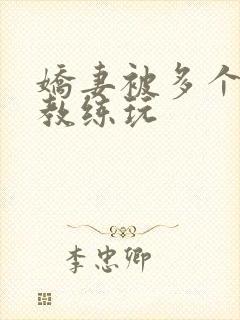 嬌妻被多个
教练玩
李忠卿